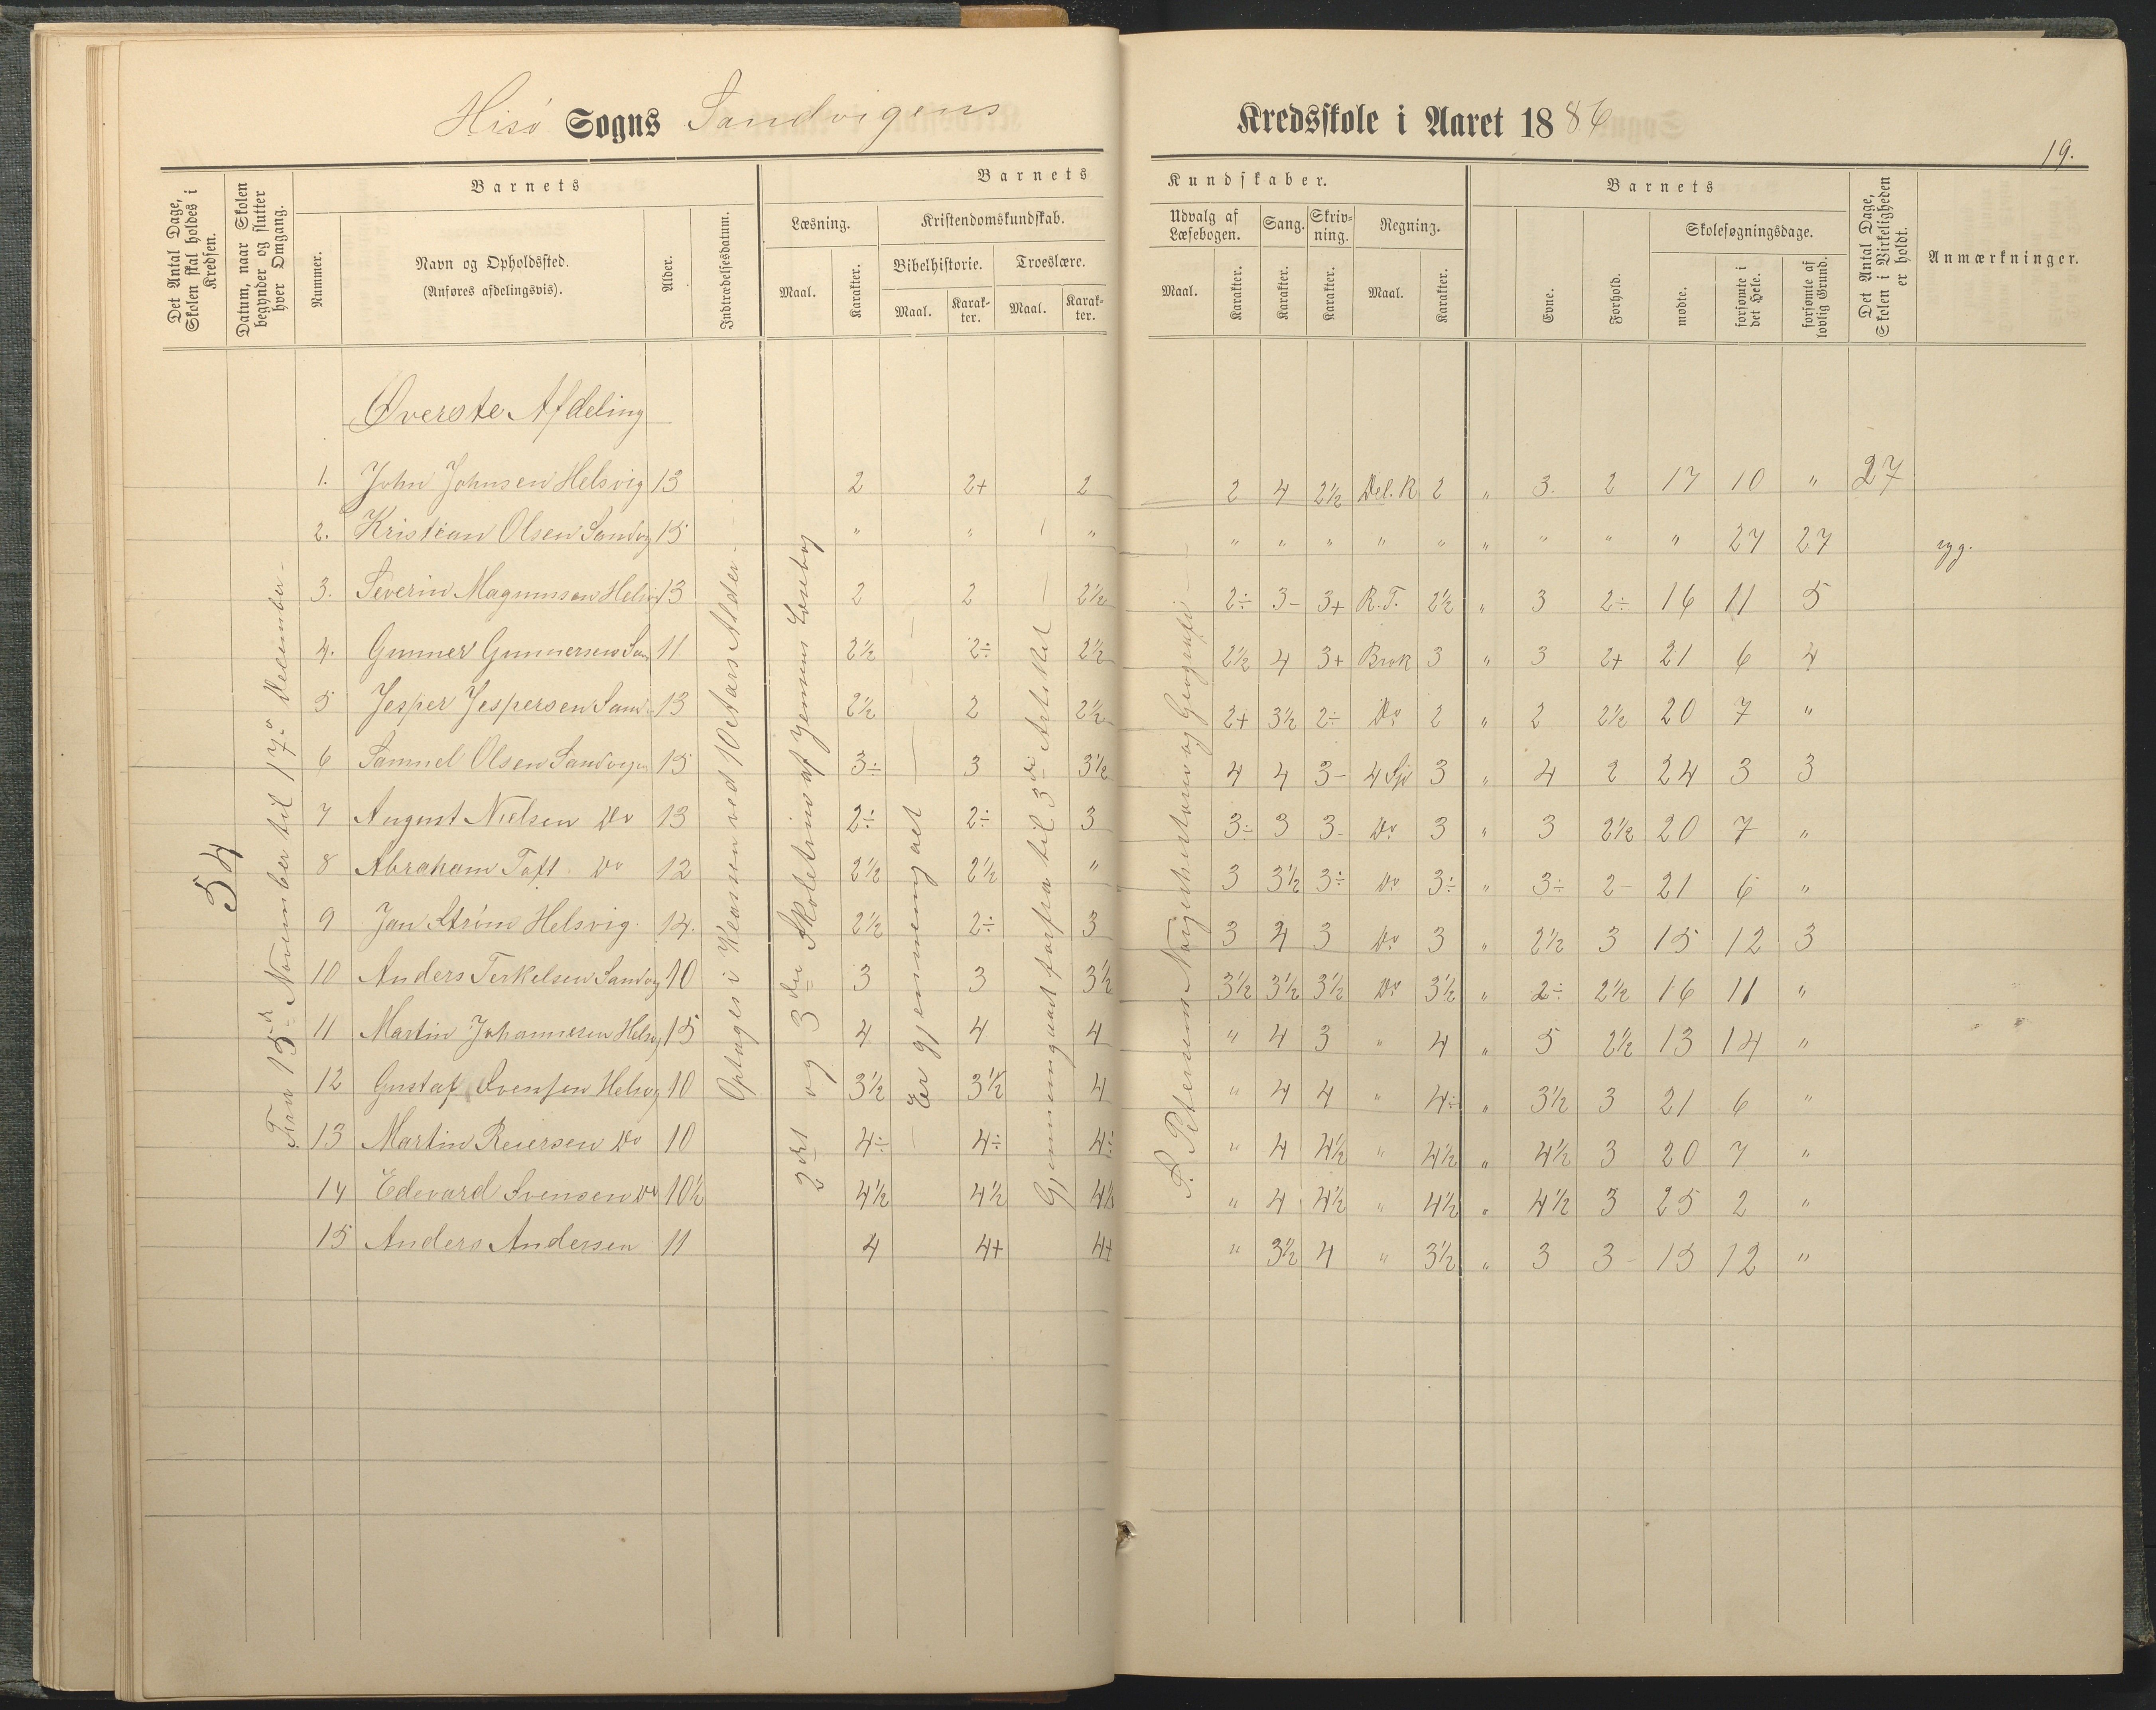 Hisø Sogns Sandvigens Kredsskole i Aaret 1886
19.
Det Antal Dage, Skolen skal holdes i Kredsen.
Datum, naar Skolen begynder og slutter hver Omgang.
Barnets
Nummer.
Navn og Opholdssted.
(Anføres afdelingsvis).
Alder.
Indtrædelsesdatum.
Barnets Kundskaber.
Læsning.
Maal.
Karakter.
Kristendomskundskab.
Bibelhistorie.
Maal.
Karakter.
Troeslære.
Maal.
Karakter.
Udvalg af Læsebogen.
Maal.
Karakter.
Sang.
Karakter.
Skrivning.
Karakter.
Regning.
Maal.
Karakter.
Barnets
Evne.
Forhold.
Skolesøgningsdage.
mødte.
forsømte i det Hele.
forsømte af lovlig Grund.
Det Antal Dage, Skolen i Virkeligheden er holdt.
Anmærkninger.
Øverste Afdeling
1. John Johnsen Helsvig 13 2 2+ 2 2 4 2½ Del. R 2 " 3. 2 17 10 " 27
2. Kristian Olsen Sandvg 15 " " " " " " " " " " " " 27 27 syg.
3. Severin Magnussen Helsv 13 2 2 2½ 2÷ 3- 3+ R.T. 2½ " 3 2÷ 16 11 5
4. Gunner Gunnersen San 11 2½ 2÷ 2½ 2½ 4 3+ Brøk 3 " 3 2+ 21 6 4
5 Jesper Jespersen Sand 13 2½ 2 2½ 2+ 3½ 2÷ Do 2 " 2 2½ 20 7 "
6 Samuel Olsen Sandvigen 15 3÷ 3 3½ 4 4 3- 4 Sp 3 " 4 2 24 3 3
7 August Nielsen Do 13 2÷ 2÷ 3 3÷ 3 3- Do 3 " 3 2½ 20 7 "
8 Abraham Toft Do 12 2½ 2½ " 3 3½ 3÷ Do 3÷ " 3÷ 2- 21 6 "
9 Jan Strøm Helsvig 14. 2½ 2÷ 3 3 4 3 Do 3 " 2½ 3 15 12 3
10 Anders Terkelsen Sandvg 10 3 3 3½ 3½ 3½ 3½ Do 3½ " 2÷ 2½ 16 11 "
11 Martin Johannesen Helsvg 15 4 4 4 " 4 3 " 4 " 5 2½ 13 14 "
12 Gustaf Svensen Helsvg 10 3½ 3½ 4 " 4 4 " 4÷ " 3½ 3 21 6 "
13 Martin Reiersen Do 10 4÷ 4÷ 4÷ " 4 4½ " 4½ " 4½ 3 20 7 "
14 Edevard Svensen Do 10½ 4½ 4½ 4½ " 4 4½ " 4½ " 4½ 3 25 2 "
15 Anders Andersen 11 4 4+ 4+ " 3½ 4 " 3½ " 3 3- 15 12 "
54
Fra 15de November til 17de December
Optages i Klassen ved 10 Aars Alder
2det og 3die Skoletrin af Jensens Læsebog
Er gjennemgaaet
Gjennemgaaet forfra til 3die Artikel
P. Petersens Norgeshistorie og Geografi